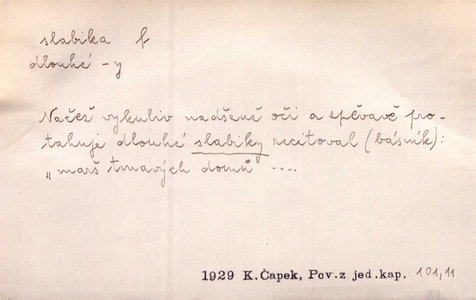 slabika f
dlouhé -y
Načež vykuliv nadšeně oči a zpěvavě pro-
tahuje dlouhé slabiky recitoval (básník):
„marš tmavých domů" ....
1929 K.Čapek, Pov.z jed.kap. 101,11